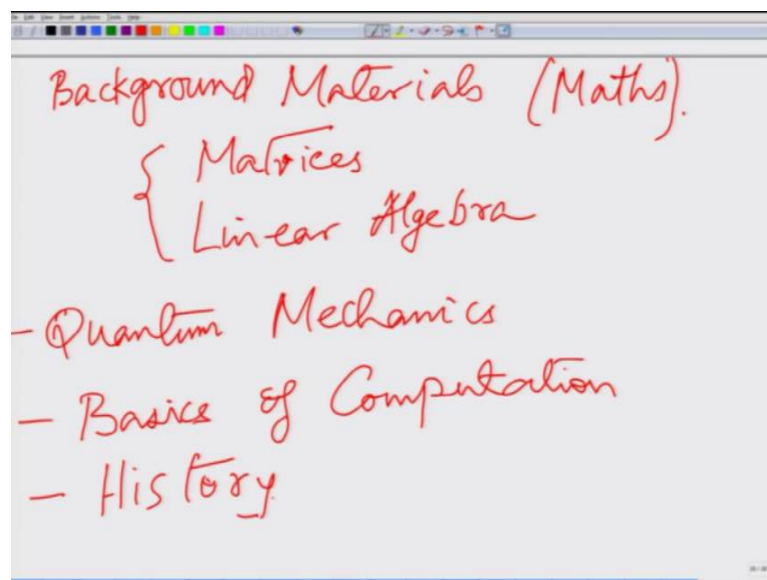 Background Materials (Maths).
Matrices
Linear Algebra
- Quantum Mechanics
- Basics of Computation
- History